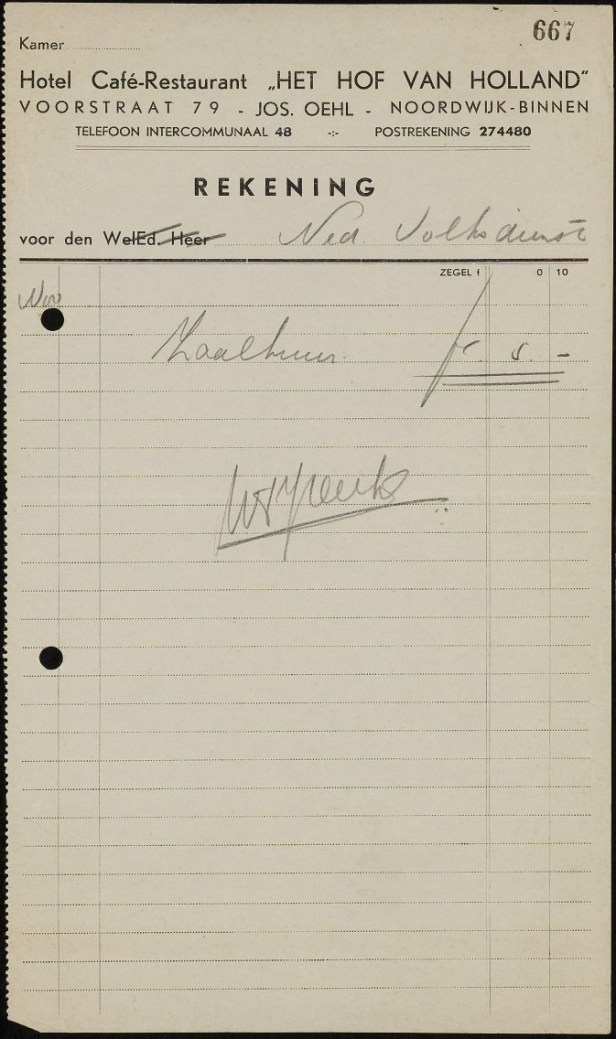 667
Kamer
Hotel Café-Restaurant „HET HOF VAN HOLLAND"
VOORSTRAAT 79 - JOS. OEHL - NOORDWIJK-BINNEN
TELEFOON INTERCOMMUNAAL 48 -:- POSTREKENING 274480
REKENING
voor den WelEd. Heer Ned. Volksdienst
ZEGEL f 0 10
Nov
Zaalhuur f. 5. -